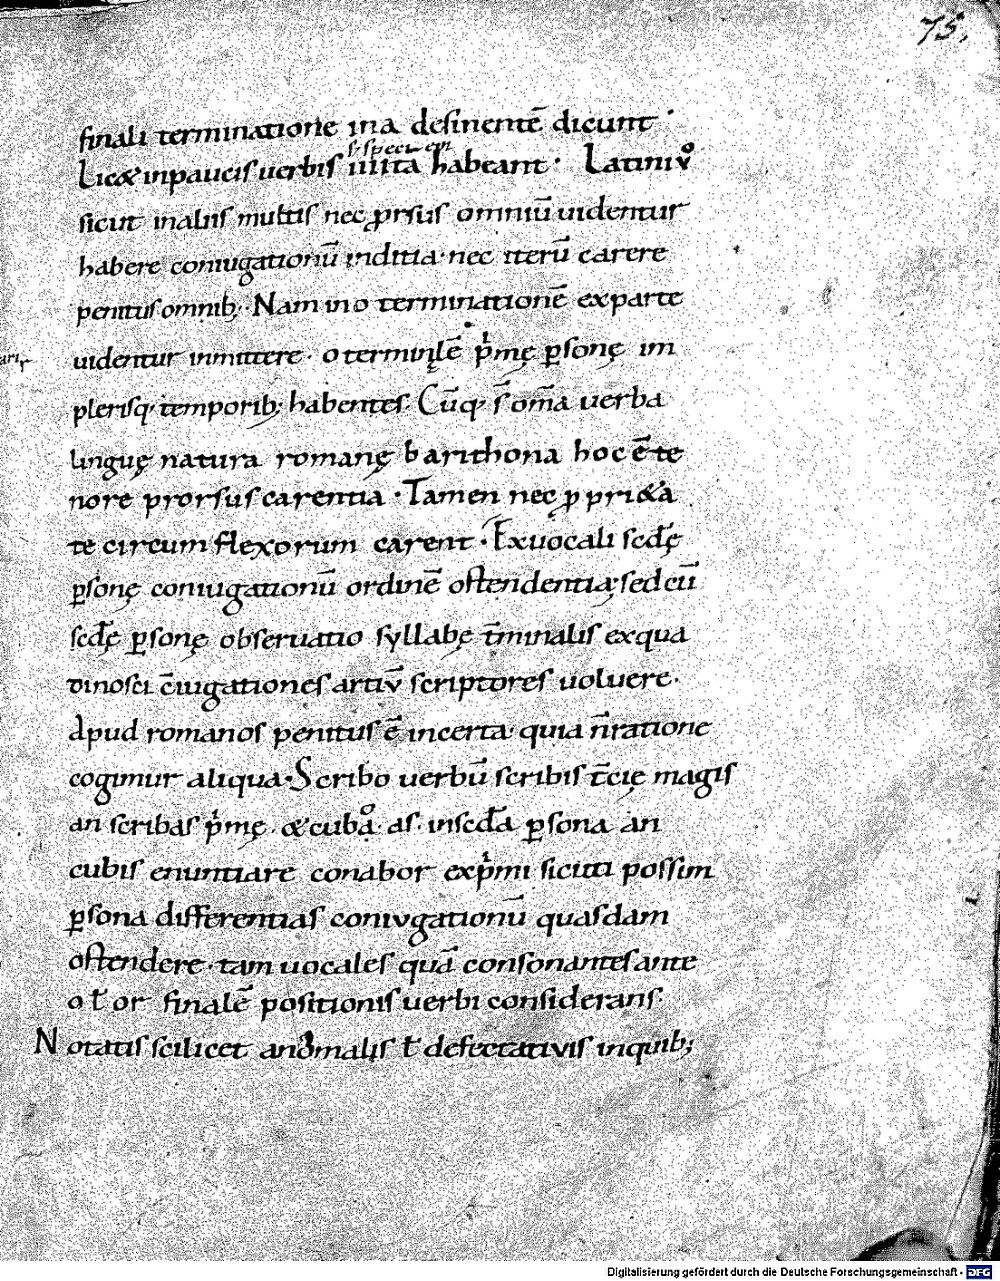 75,
finali terminatione in a desinentē dicunt ·
Lic& in paucis uerbis iuita habeant · Latini v̊
sicut in aliis multis nec ꝓrsus omniū uidentur
habere coniugationū inditia · nec iterū carere
penitus omnib; · Nam in o terminationē ex parte
uidentur inmittere · o terminłę p̍mę ꝑsonę im
plerisq · temporib; habentes · Cūq · s̄ om̄a uerba
linguę natura romanę barithona hoc ē te
nore prorsus carentia · Tamen nec ꝓ pri&a
te circum flexorum carent · Ex uocali scd̄ę
ꝑsonę coniugationū ordinē ostendentia; sed cū
scd̄ę ꝑsonę obseruatio syllabę t̄minalis ex qua
dinosci c̄iugationes artiv̄ scriptores uoluere ·
Apud romanos penitus ē incerta · quia n̄ ratione
cogimur aliqua · Scribo uerbū scribis t̄cię magis
an scribas p̍mę · & cubo · as · in scd̄a ꝑsona an
cubis enuntiare conabor ex p̍mi sicuti possim
ꝑsona differentias conivgationū quasdam
ostendere · tam uocales quā consonantes ante
o ł or finalē positionis uerbi considerans ·
Notatis scilicet anomalis ł defectativis inquib;
Digitalisierung gefördert durch die Deutsche Forschungsgemeinschaft - DFG